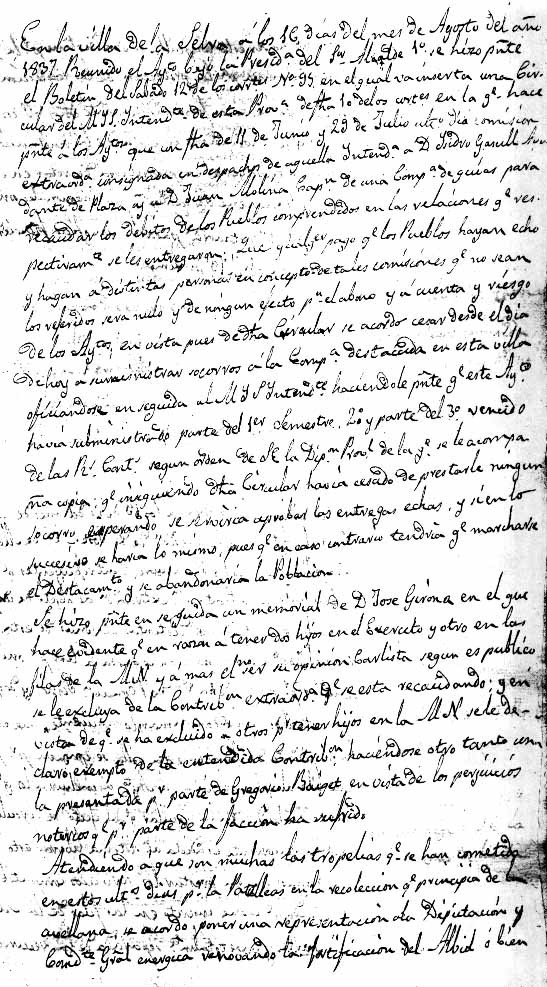 En la villa de la Selva á los 16 dias del mes de Agosto del año
1837. Reunido el Ayto. bajo la Presida. del Sor. Alcalde 1o. se hizo pnte
el Boletin del Sabado 12 de los corrtes No. 95 en el qual va inserta una Cir-
cular del M.Y.S. Intendte. de esta Prova. de fha 10 de los cortes en la qe. hace
pnte á los Aytos. que con fha de 11 de Junio y 29 de Julio ulto. dió comision
extraorda. consignada en despacho de aquella Intenda. a D. Isidro Ganull
dante de Plaza y a D. Juan Molina Capn. de una Compa. de guias para
recaudar los debitos de los Pueblos comprendidos en las relaciones qe. res-
pectivame. se les entregaron; que qualqer. pago qe. los Pueblos hayan echo
y hagan á distintas personas en concepto de tales comisiones qe. no sean
los referidos será nulo y de ningun efecto pa. el abono y á cuenta y riesgo
de los Aytos; en vista pues de dha Circular se acordó cesar desde el dia
de hoy á suministrar socorros á la Compa. destacada en esta villa
oficiandose en seguida al M.Y.S. Intendte. haciendole pnte qe. este Ayto.
havia subministrado parte del 1er. Semestre, 2o. y parte del 3o. vencido
de las Rs. Cont. segun orden de SE la Dipn. Provl. de la qe. se le acompa
ña copia: qe. insiguiendo dha Circular havia cesado de prestarle ningun
socorro, esperando se serviria aprobar las entregas echas, y si en lo
sucesivo se haria lo mismo, pues qe. en caso contrario tendria qe. marcharse
el Destacamto. y se abandonaria la Poblacion.
Se hizo pnte en seguida un memorial de D. Jose Girona en el que
hace evidente qe. en razon á tener dos hijos en el Exercito y otro en las
fila de la M.N. y á mas el no ser su opinion Carlista segun es publico
se le excluya de la Contribon. extraorda. qe. se esta recaudando; y en
vista de qe. se ha excluido a otros pr. tener hijos en la M.N. se le de-
claró exempto de la entendida Contribon. haciendose otro tanto con
la presentada pr. parte de Gregorio Baiget, en vista de los perjuicios
notorios qe. pr. parte de la faccion ha sufrido.
Atendiendo a que son muchas las tropelias qe. se han cometida
en estos ults. dias pr. la en la recoleccion qe. principia de la
avellana, se acordo poner una representacion a la Diputación y
Comdte. Gral energica renovando la fortificacion del Albid ó bien